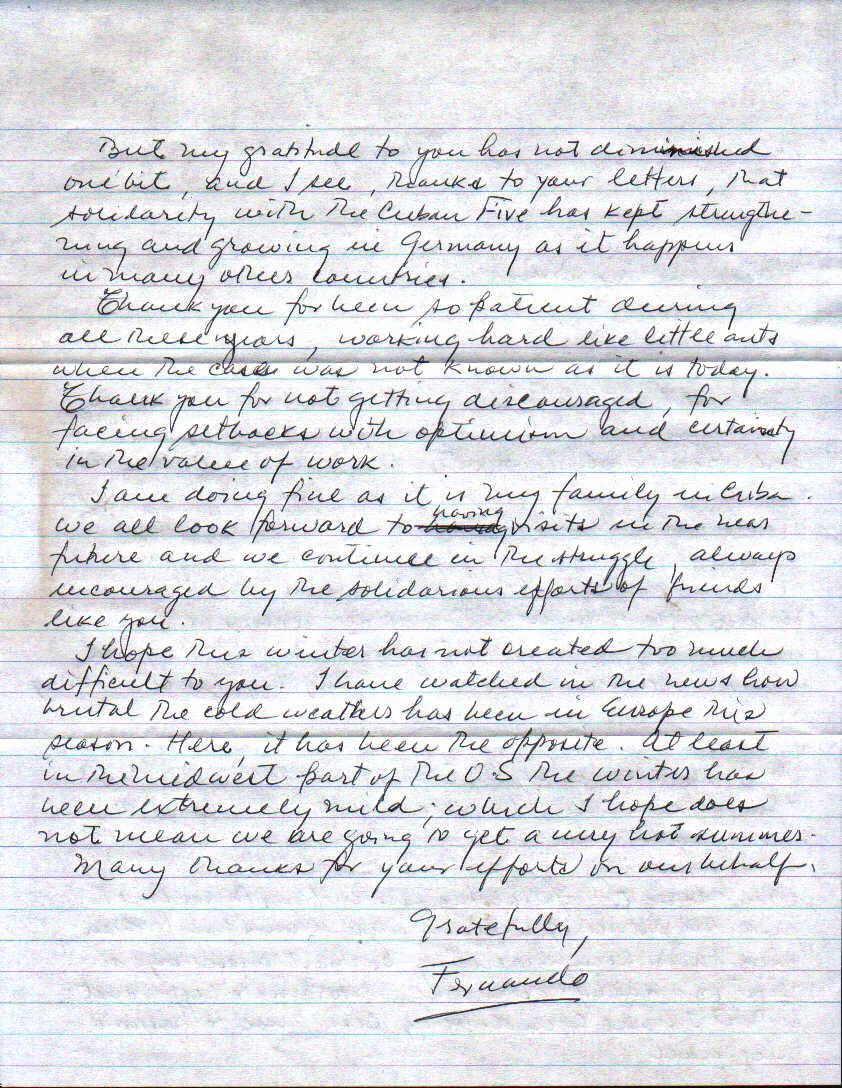 But my gratitude to you has not diminished
one bit, and I see, thanks to your letters, that
solidarity with the Cuban Five has kept strengthe-
ning and growing in Germany as it happens
in many other countries.
Thank you for been so patient during
all these years, working hard like little ants
when the case was not known as it is today.
Thank you for not getting discouraged, for
facing setbacks with optimism and certainty
in the value of work.
I am doing fine as it is my family in Cuba.
we all look forward to having visits in the near
future and we continue in the struggle, always
encouraged by the solidarious efforts of friends
like you.
I hope this winter has not created too much
difficult to you. I have watched in the news how
brutal the cold weather has been in Europe this
season. Here, it has been the opposite. At least
in the midwest part of the U.S the winter has
been extremely mild, which I hope does
not mean we are going to get a very hot summer.
Many thanks for your efforts on our behalf.
Gratefully,
Fernando